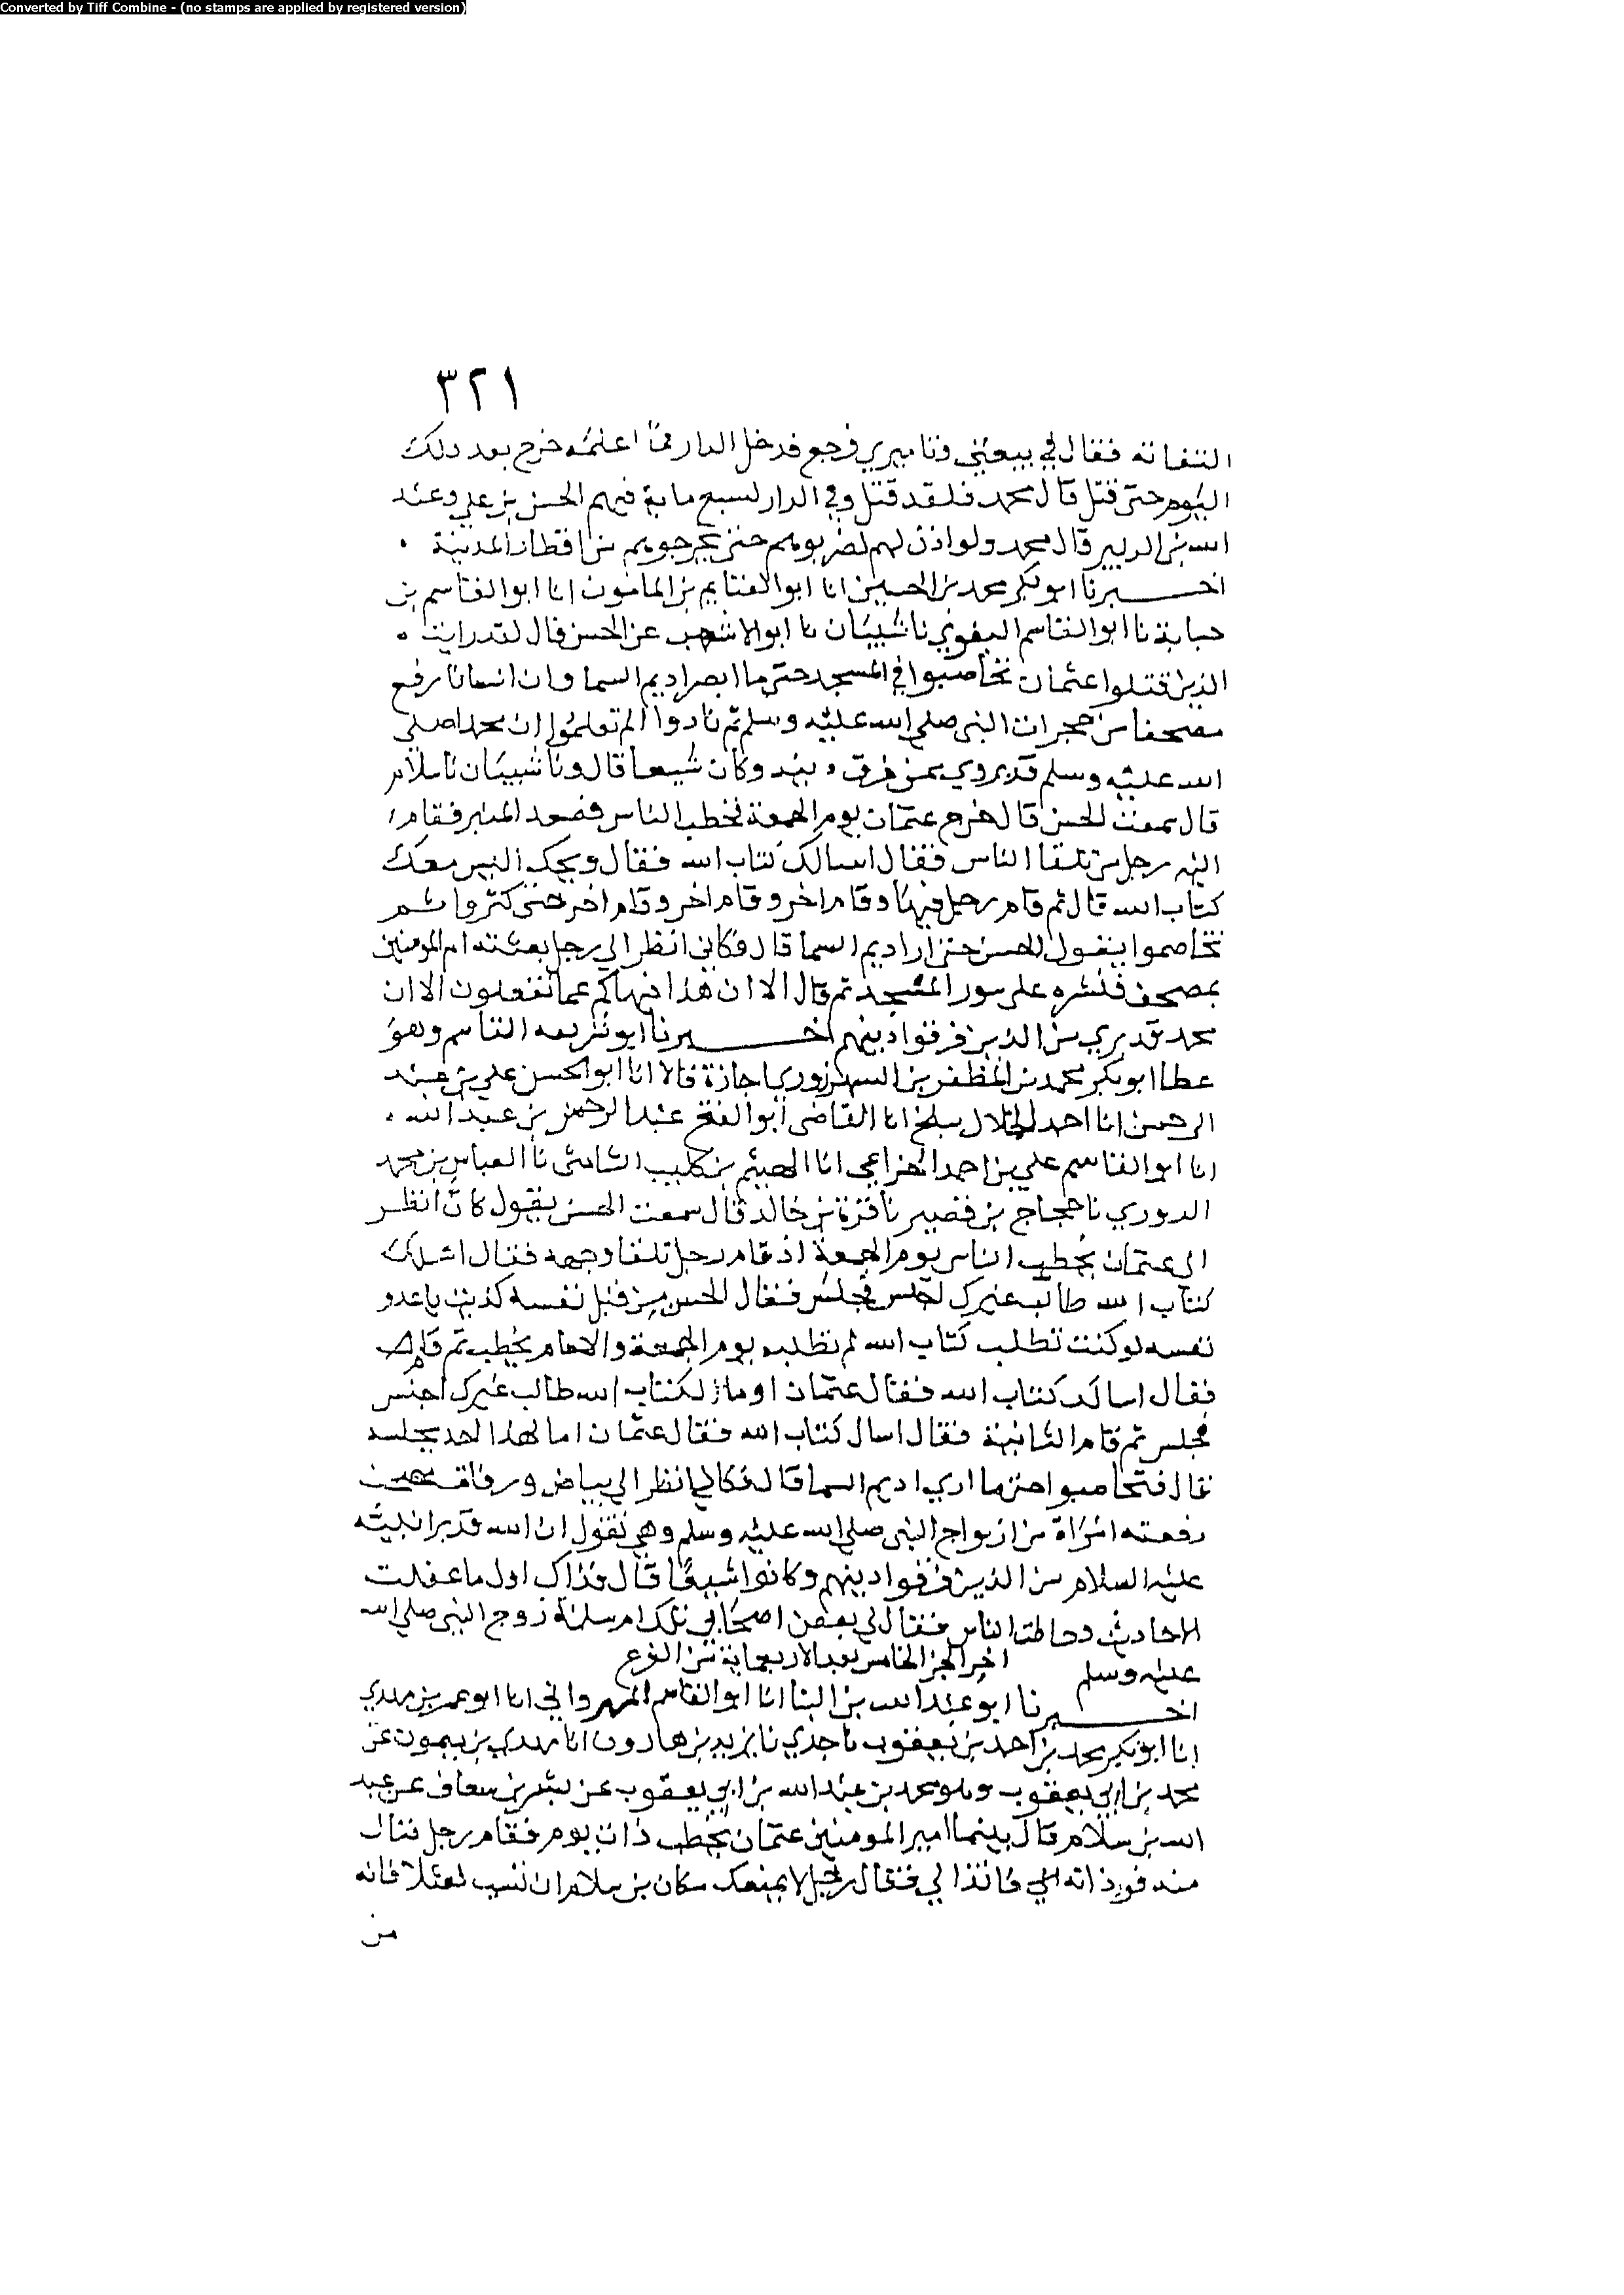 Converted by Tiff Combine - (no stamps are applied by registered version)
٣٢١
التفاته فقال في بيعتي وتاميري فرجع فدخل الدار فما اعلمه خرج بعد ذلك
اليوم حتى قتل قال محمد فلقد قتل وفي الدار لسبع ماية فيهم الحسن بن علي وعبد
الله بن الزبير قال محمد ولو اذن لهم لضربوهم حتى يخرجوهم من اقطار المدينة
اخبرنا ابو بكر محمد بن الحسين انا ابو الغنايم بن المامون انا ابو القاسم بن
حبابة نا ابو القاسم البغوي نا شيبان نا ابو الاشهب عن الحسن قال لقد رايت
الذين قتلوا عثمان تحاصبوا في المسجد حتى ما ابصر اديم السما وان انسانا رفع
مصحفا من حجرات النبي صلى الله عليه وسلم ثم نادوا الم تعلموا ان محمدا صلى
الله عليه وسلم قد بري ممن فرق دينه وكان شيعا قال ونا شيبان نا سلام
قال سمعت الحسن قال خرج عثمان يوم الجمعة فخطب الناس فصعد المنبر فقام
اليه رجل من تلقا الناس فقال اسالك كتاب الله فقال ويحك اليس معك
كتاب الله قال ثم قام رجل فيها وقام اخر وقام اخر وقام اخر حتى كثروا ثم
تحاصموا يقول الحسن حتى ارا اديم السما قال فكاني انظر الى رجل بعثته ام المومنين
بمصحف فنشره على سور المسجد ثم قال الا ان هذا ينهاكم عما تفعلون الا ان
محمد قد بري من الذين فرقوا دينهم اخبرنا ابو القاسم وهو
عطا ابو بكر محمد بن المظفر بن الشهرزوري اجازة قالا انا ابو الحسن علي بن عبد
الرحمن انا احمد الخلال ببلخ انا القاضي ابو الفتح عبد الرحمن بن عبد الله
انا ابو القاسم علي بن احمد الخزاعي انا الهيثم بن كليب الشاشي نا العباس بن محمد
الدوري نا حجاج بن نصير نا قرة بن خالد قال سمعت الحسن يقول كان انظر
الى عثمان يخطب الناس يوم الجمعة اذ قام رجل تلقا وجهه فقال اسلك
كتاب الله طالب غيرك اجلس فجلس فقال الحسن من قبل نفسه كذبت يا عدو
نفسه لو كنت تطلب كتاب الله لم تطلبه يوم الجمعة والامام يخطب ثم قام
فقال اسالك كتاب الله فقال عثمان اوما لكتاب الله طالب غيرك اجلس
فجلس ثم قام الثانية فقال اسال كتاب الله فقال عثمان اما لهذا احد يجلسه
قال فتحاصبوا حتى ما ارى اديم السما قال فكاني انظر الى بياض ورقات مصحف
رفعته امراة من ازواج النبي صلى الله عليه وسلم وهي تقول ان الله قد برا نبيه
عليه السلام من الذين فرقوا دينهم وكانوا شيعا قال فذاك اول ما عقلت
الاحاديث وخالطت الناس فقال لي بعض اصحابي تلك ام سلمة زوج النبي صلى الله
عليه وسلم اخر الجز الخامس بعد الاربعماية من الفرع
اخبرنا ابو عبد الله بن البنا انا ابو القاسم المهرواني انا ابو عمر بن مهدي
انا ابو بكر محمد بن احمد بن يعقوب نا جدي نا يزيد بن هارون انا مهدي بن ميمون عن
محمد بن ابي يعقوب وهو محمد بن عبد الله بن ابي يعقوب عن بشر بن سعاف عن عبد
الله بن سلام قال بينما امير المومنين عثمان يخطب ذات يوم فقام رجل فنال
منه فوذاته فاتذا لي فقال رجل لا يمنعك مكان بن سلام ان تسب نعثلا فانه
من